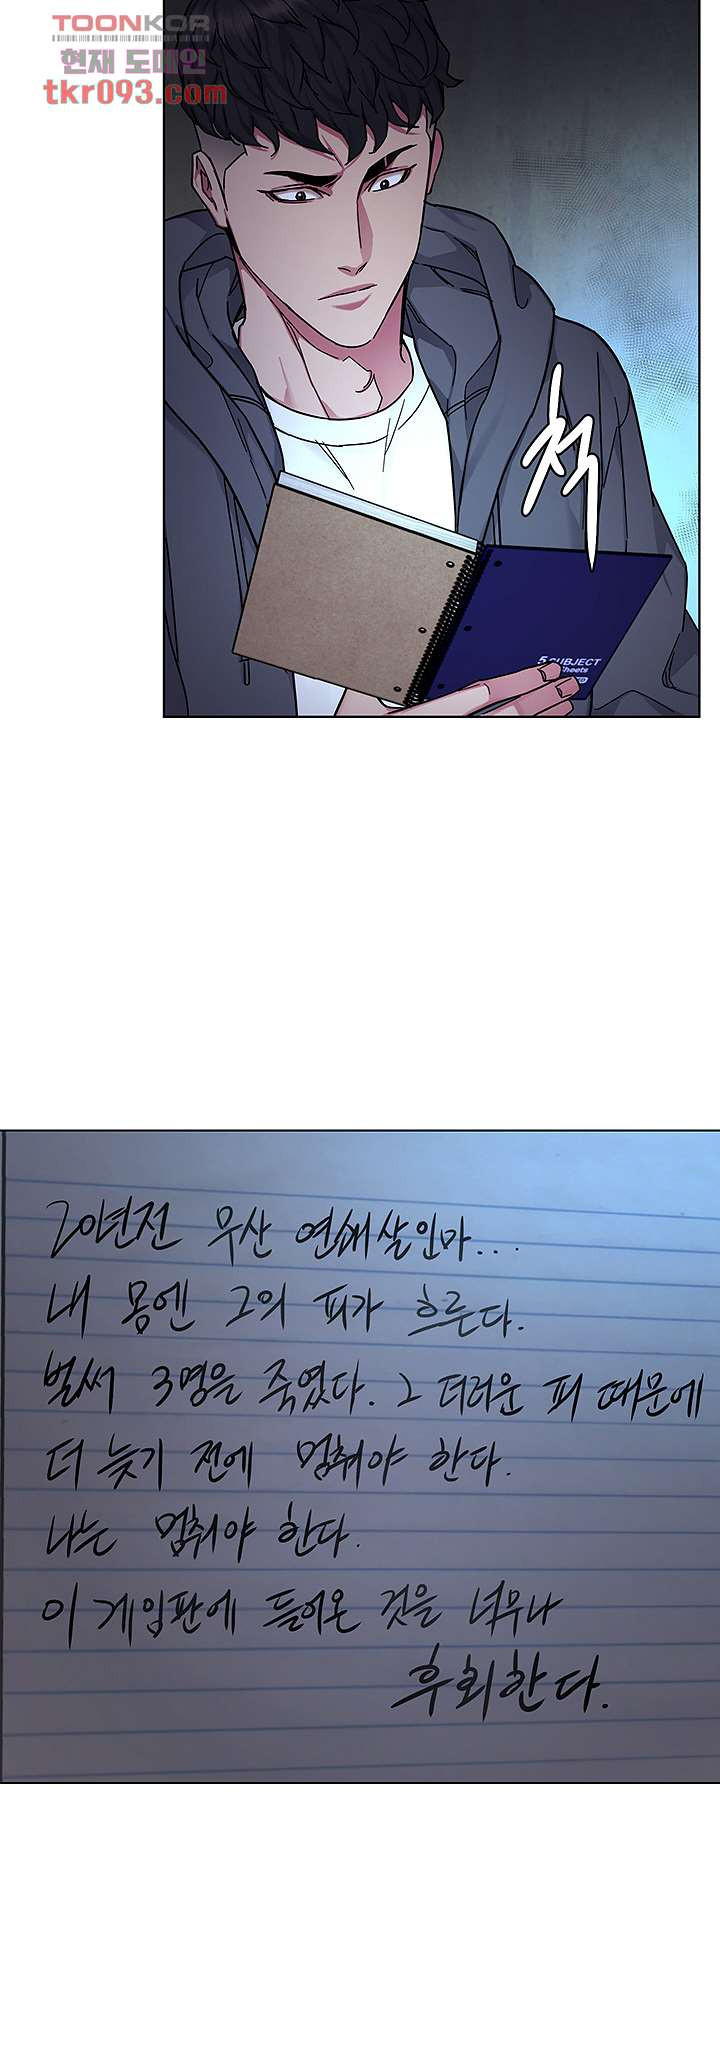 TOONKOR
현재 도메인
tkr093.com
척
5 SUBJECT
20년전 무산 연쇄살인마...
내 몸엔 그의 피가 흐른다.
벌써 3명을 죽였다. 그 더러운 피 때문에
더 늦기 전에 멈춰야 한다.
나는 멈춰야 한다.
이 게임판에 들어온 것을 너무나
후회한다.